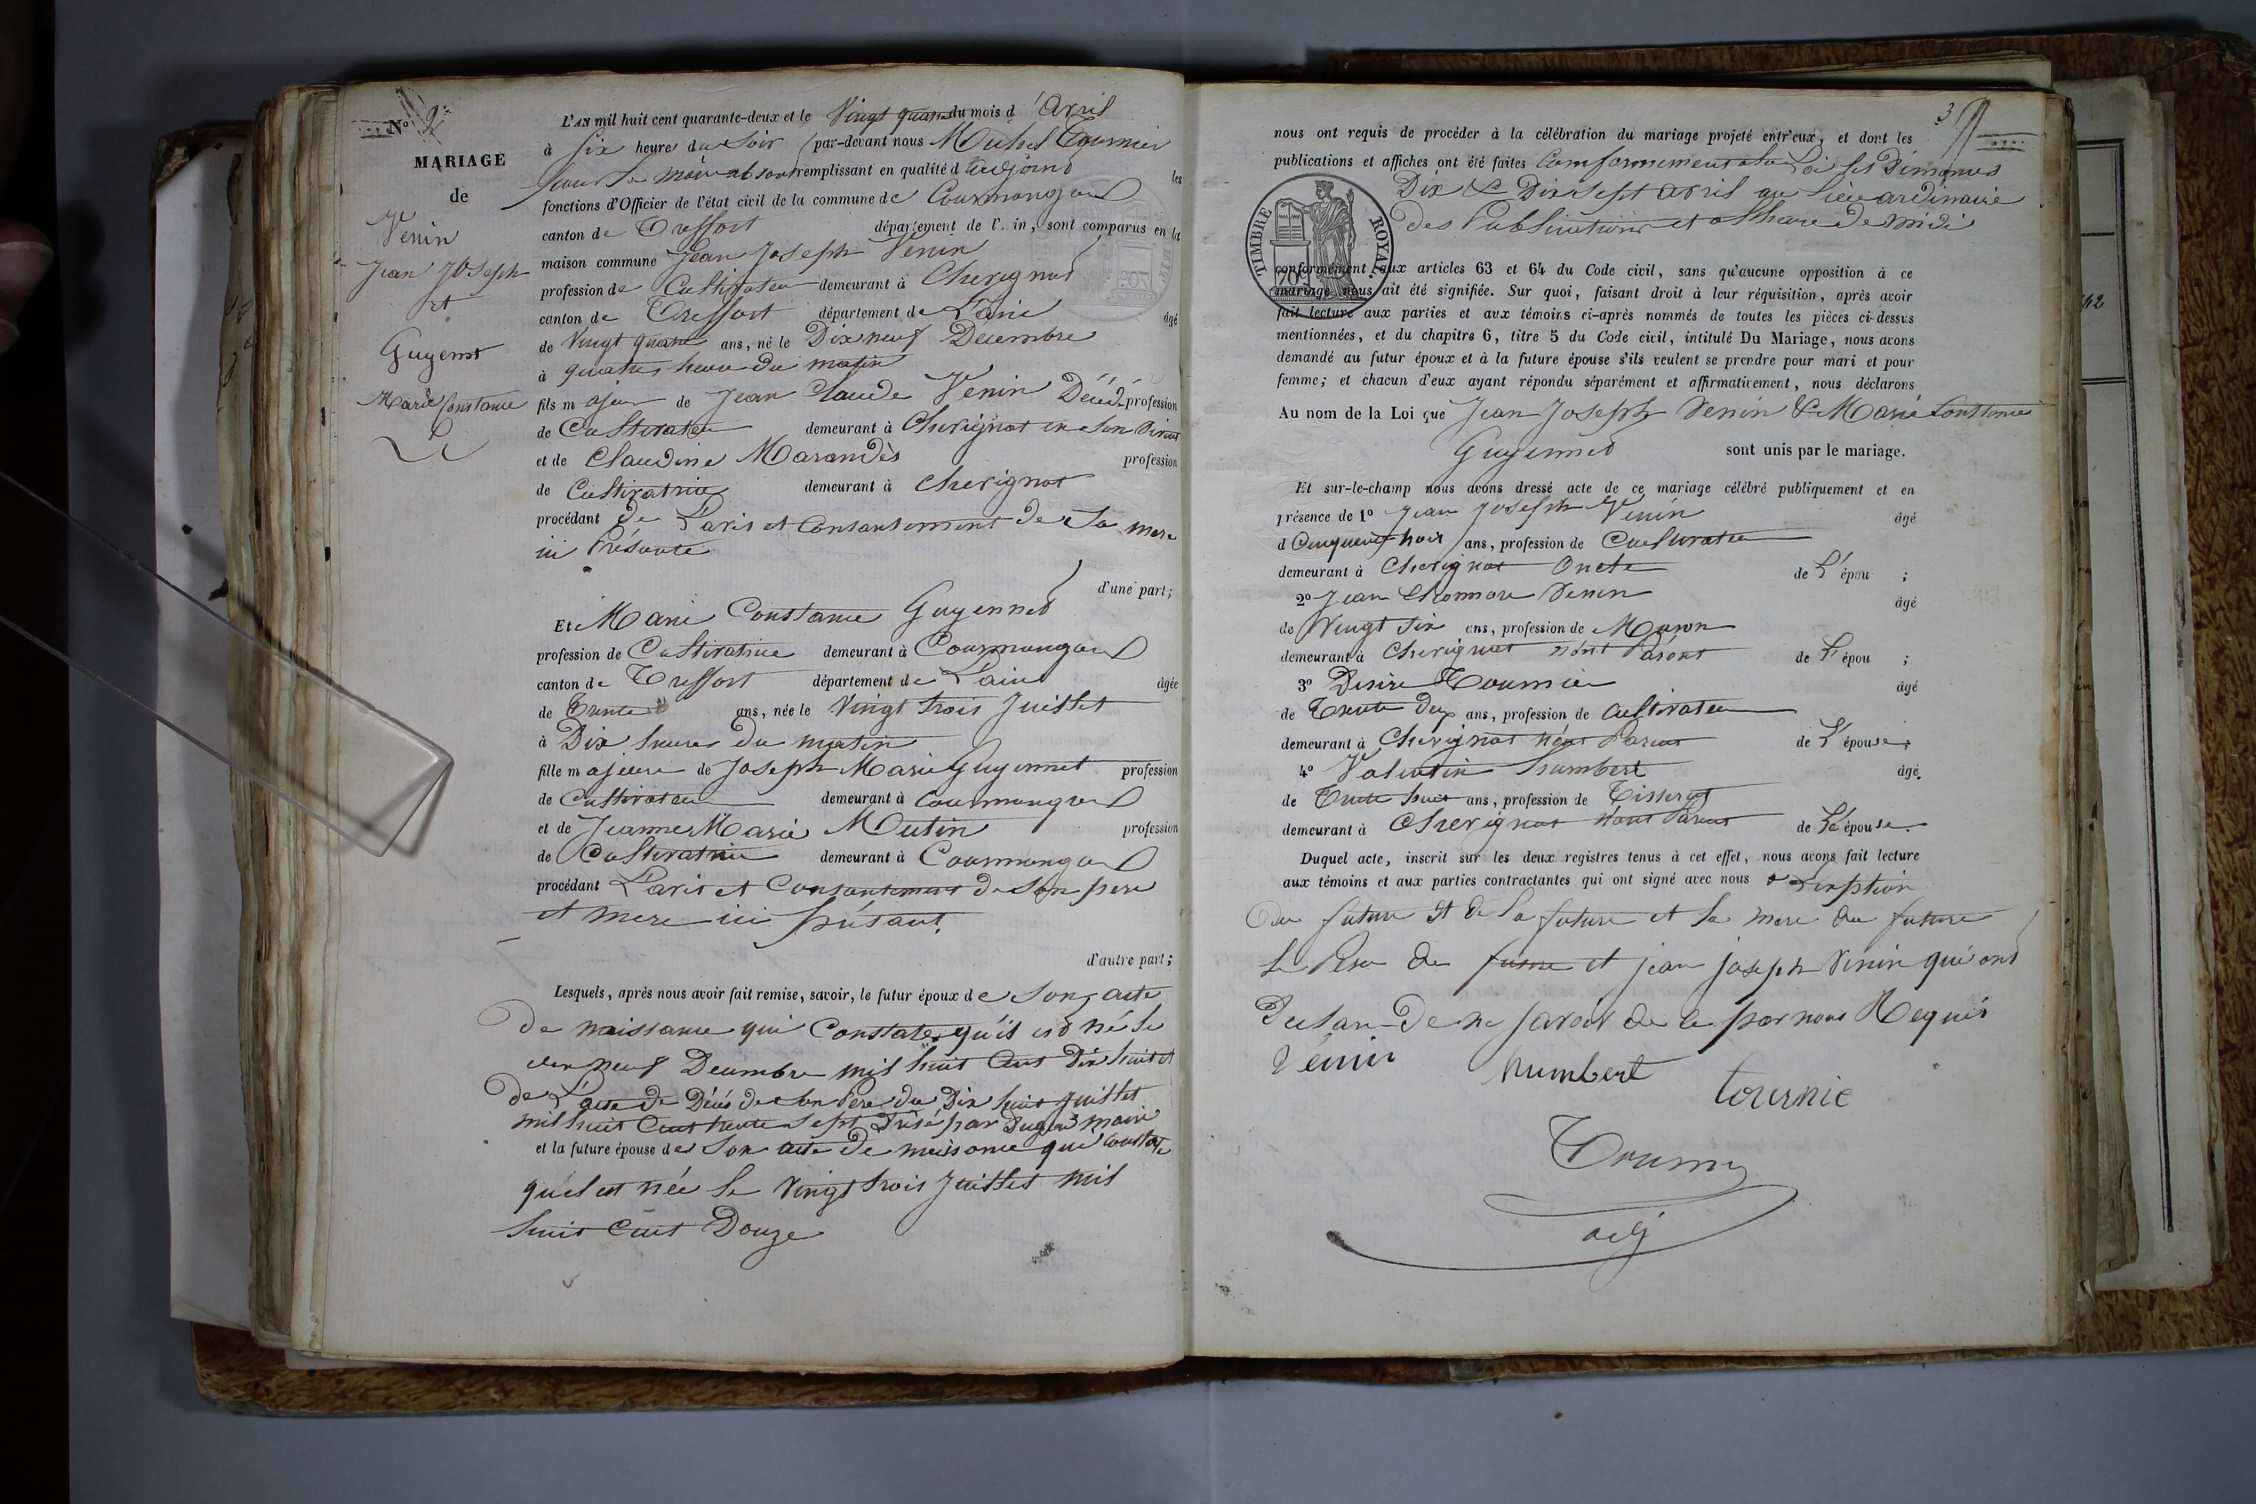 N° 2
MARIAGE
de
Venin
Jean Joseph
et
Guyennet
Marie Constance
L'AN mil huit cent quarante-deux et le Vingt quatre du mois d'Avril
à Six heure du Soir par-devant nous Michel Tournier
pour le maire absent remplissant en qualité d'adjoint les
fonctions d'Officier de l'état civil de la commune de Courmangoux
canton de Treffort département de l'Ain, sont comparus en la
maison commune Jean Joseph Venin
profession de Cultivateur demeurant à Chevignat
canton de Treffort département de L'ain âgé
de Vingt quatre ans, né le Dix neuf Décembre
à quatre heure du matin
fils majeur de Jean Claude Venin Décédé profession
de Cultivateur demeurant à Chevignat en son Vivant
et de Claudine Marandès profession
de Cultivatrice demeurant à Chevignat
procédant de L'avis et Consantement de sa mere
ici Présante
d'une part;
Et Marie Constance Guyennet
profession de Cultivatrice demeurant à Courmangoux
canton de Treffort département de L'ain âgée
de Trente ans, née le Vingt trois Juillet
à Dix heures du matin
fille majeure de Joseph Marie Guyennet profession
de Cultivateur demeurant à Courmangoux
et de Jeanne Marie Mutin profession
de Cultivatrice demeurant à Courmangoux
procédant L'avis et Consantement de son pere
et mere ici présant
d'autre part;
Lesquels, après nous avoir fait remise, savoir, le futur époux de son acte
de naissance qui Constate qu'il est né le
dix neuf Decembre mil huit Cent Dix huit et
de L'acte de Décés de son Pere du Dix huit Juillet
mil huit Cent trente sept par maire
et la future épouse de son acte de naissance qui Constate
quel est née le Vingt trois Juillet mil
huit Cent Douze
3
nous ont requis de procéder à la célébration du mariage projeté entr'eux, et dont les
publications et affiches ont été faites Conformement a la Loi les Dimanes
Dix & Dix sept avril au Lieu ardinaire
des Publications et a l'heure de midi
TIMBRE ROYAL
70 c
conformément aux articles 63 et 64 du Code civil, sans qu'aucune opposition à ce
mariage nous ait été signifiée. Sur quoi, faisant droit à leur réquisition, après avoir
fait lecture aux parties et aux témoins ci-après nommés de toutes les pièces ci-dessus
mentionnées, et du chapitre 6, titre 5 du Code civil, intitulé Du Mariage, nous avons
demandé au futur époux et à la future épouse s'ils veulent se prendre pour mari et pour
femme; et chacun d'eux ayant répondu séparément et affirmativement, nous déclarons
Au nom de la Loi que Jean Joseph Venin & Marie Constance
Guyennet sont unis par le mariage.
Et sur-le-champ nous avons dressé acte de ce mariage célébré publiquement et en
présence de 1° Jean Joseph Venin âgé
d Cinquente trois ans, profession de Cultivateur
demeurant à Chevignat Oncle de L'épou ;
2° Jean Venin âgé
de Vingt six ans, profession de Maron
demeurant à Chevignat nónt Parent de L'épou ;
3° Desire Tournier âgé
de Trente deux ans, profession de Cultivateur
demeurant à Chevignat nónt Parent de L'épouse.
4° Valentin humbert âgé
de Trente huit ans, profession de Tisserant
demeurant à Chevignat nónt Parent de Lé épouse.
Duquel acte, inscrit sur les deux registres tenus à cet effet, nous avons fait lecture
aux témoins et aux parties contractantes qui ont signé avec nous
du future et de la future et la mere du future
le Pere de future et jean joseph Venin qui ont
de ne savoir de ce par nous Requis
Vénin humbert tournie
Tournier
adj